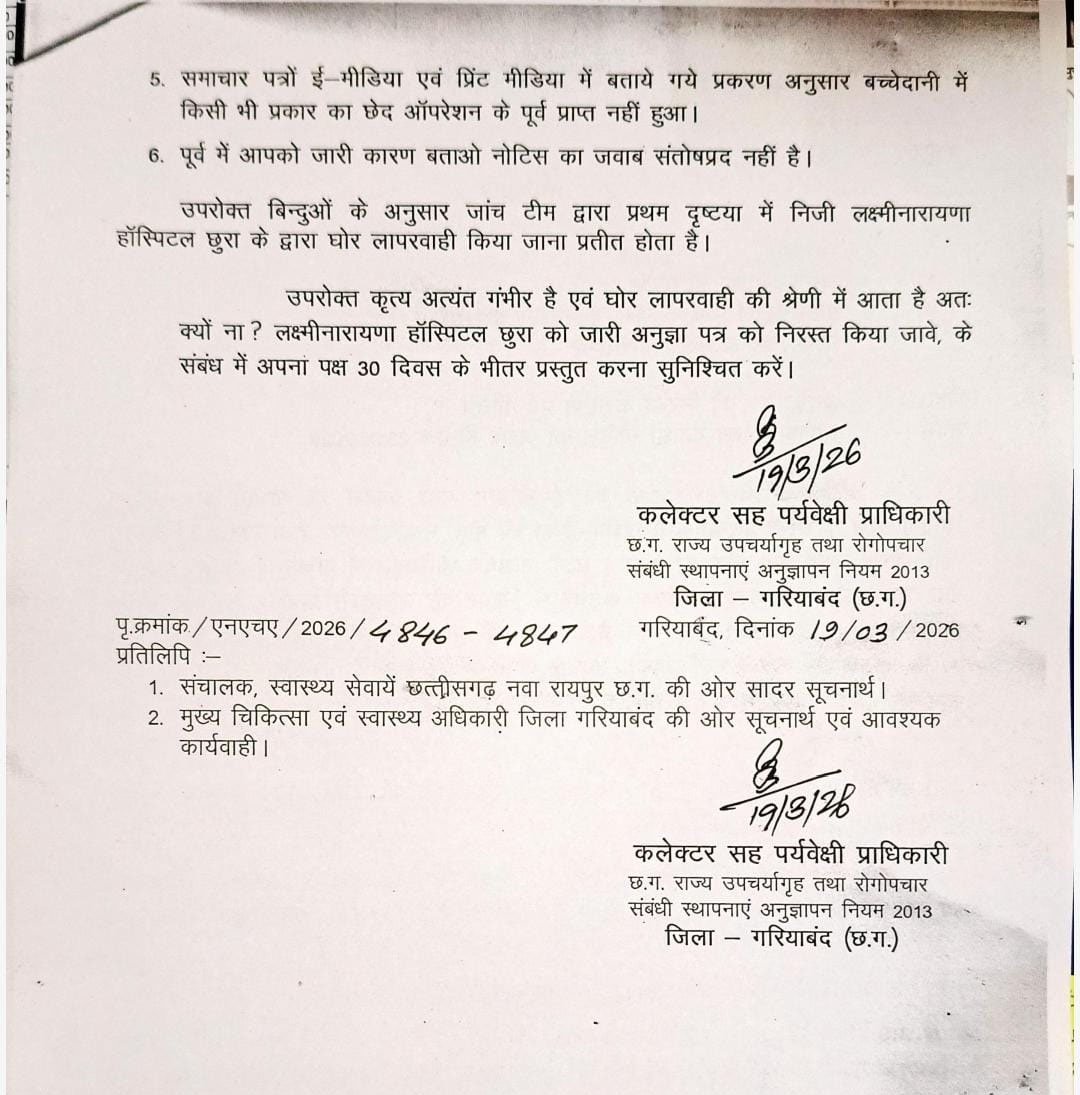 5. समाचार पत्रों ई–मीडिया एवं प्रिंट मीडिया में बताये गये प्रकरण अनुसार बच्चेदानी में
किसी भी प्रकार का छेद ऑपरेशन के पूर्व प्राप्त नहीं हुआ।
6. पूर्व में आपको जारी कारण बताओ नोटिस का जवाब संतोषप्रद नहीं है।
उपरोक्त बिन्दुओं के अनुसार जांच टीम द्वारा प्रथम दृष्टया में निजी लक्ष्मीनारायणा
हॉस्पिटल छुरा के द्वारा घोर लापरवाही किया जाना प्रतीत होता है।
उपरोक्त कृत्य अत्यंत गंभीर है एवं घोर लापरवाही की श्रेणी में आता है अतः
क्यों ना? लक्ष्मीनारायणा हॉस्पिटल छुरा को जारी अनुज्ञा पत्र को निरस्त किया जावे, के
संबंध में अपना पक्ष 30 दिवस के भीतर प्रस्तुत करना सुनिश्चित करें।
19/3/26
कलेक्टर सह पर्यवेक्षी प्राधिकारी
छ.ग. राज्य उपचर्यागृह तथा रोगोपचार
संबंधी स्थापनाएं अनुज्ञापन नियम 2013
जिला – गरियाबंद (छ.ग.)
पृ.क्रमांक./एनएचए/2026/4846 - 4847 गरियाबंद, दिनांक 19/03/2026
प्रतिलिपि :–
1. संचालक, स्वास्थ्य सेवायें छत्तीसगढ़ नवा रायपुर छ.ग. की ओर सादर सूचनार्थ।
2. मुख्य चिकित्सा एवं स्वास्थ्य अधिकारी जिला गरियाबंद की ओर सूचनार्थ एवं आवश्यक
कार्यवाही।
19/3/26
कलेक्टर सह पर्यवेक्षी प्राधिकारी
छ.ग. राज्य उपचर्यागृह तथा रोगोपचार
संबंधी स्थापनाएं अनुज्ञापन नियम 2013
जिला – गरियाबंद (छ.ग.)